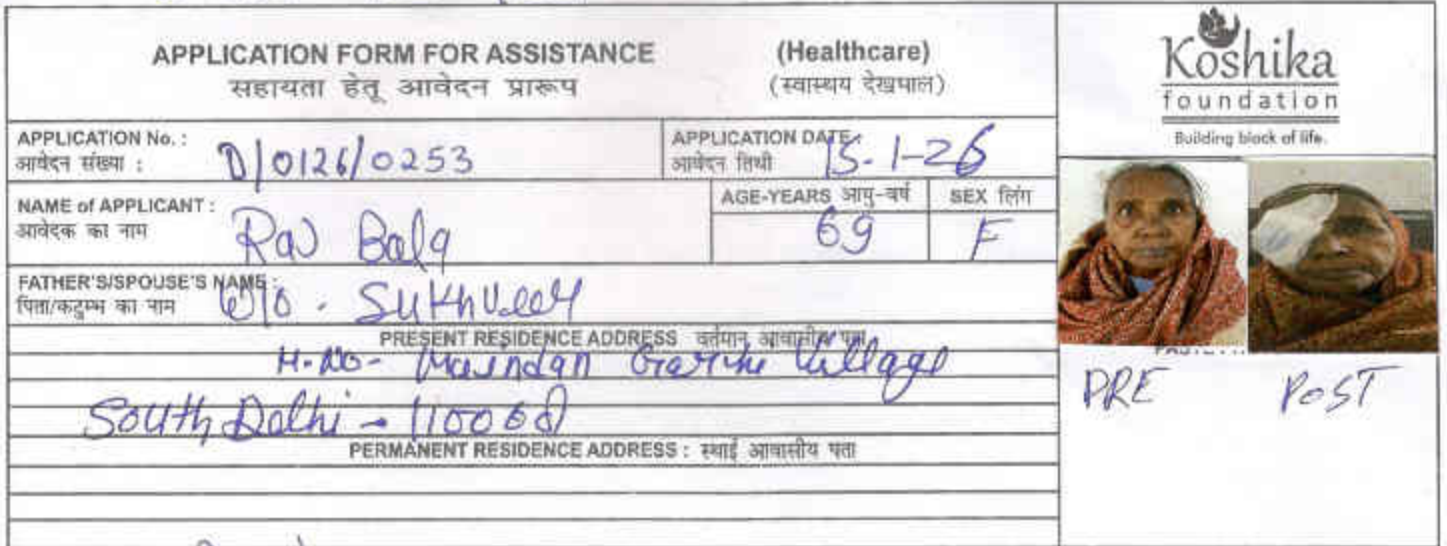 APPLICATION FORM FOR ASSISTANCE (Healthcare)
सहायता हेतू आवेदन प्रारूप (स्वास्थय देखभाल)
Koshika
foundation
Building block of life.
APPLICATION No. : D/0126/0253
आवेदन संख्या :
APPLICATION DATE 15-1-26
आवेदन तिथी
NAME of APPLICANT : Raj Bala
आवेदक का नाम
AGE-YEARS आयु-वर्ष SEX लिंग
69 F
FATHER'S/SPOUSE'S NAME : W/o. Sukhveer
पिता/कटुम्भ का नाम
PRESENT RESIDENCE ADDRESS वर्तमान आवासीय पता
H-No- Maindan Garhi Village
South Delhi - 110068
PERMANENT RESIDENCE ADDRESS : स्थाई आवासीय पता
PRE POST